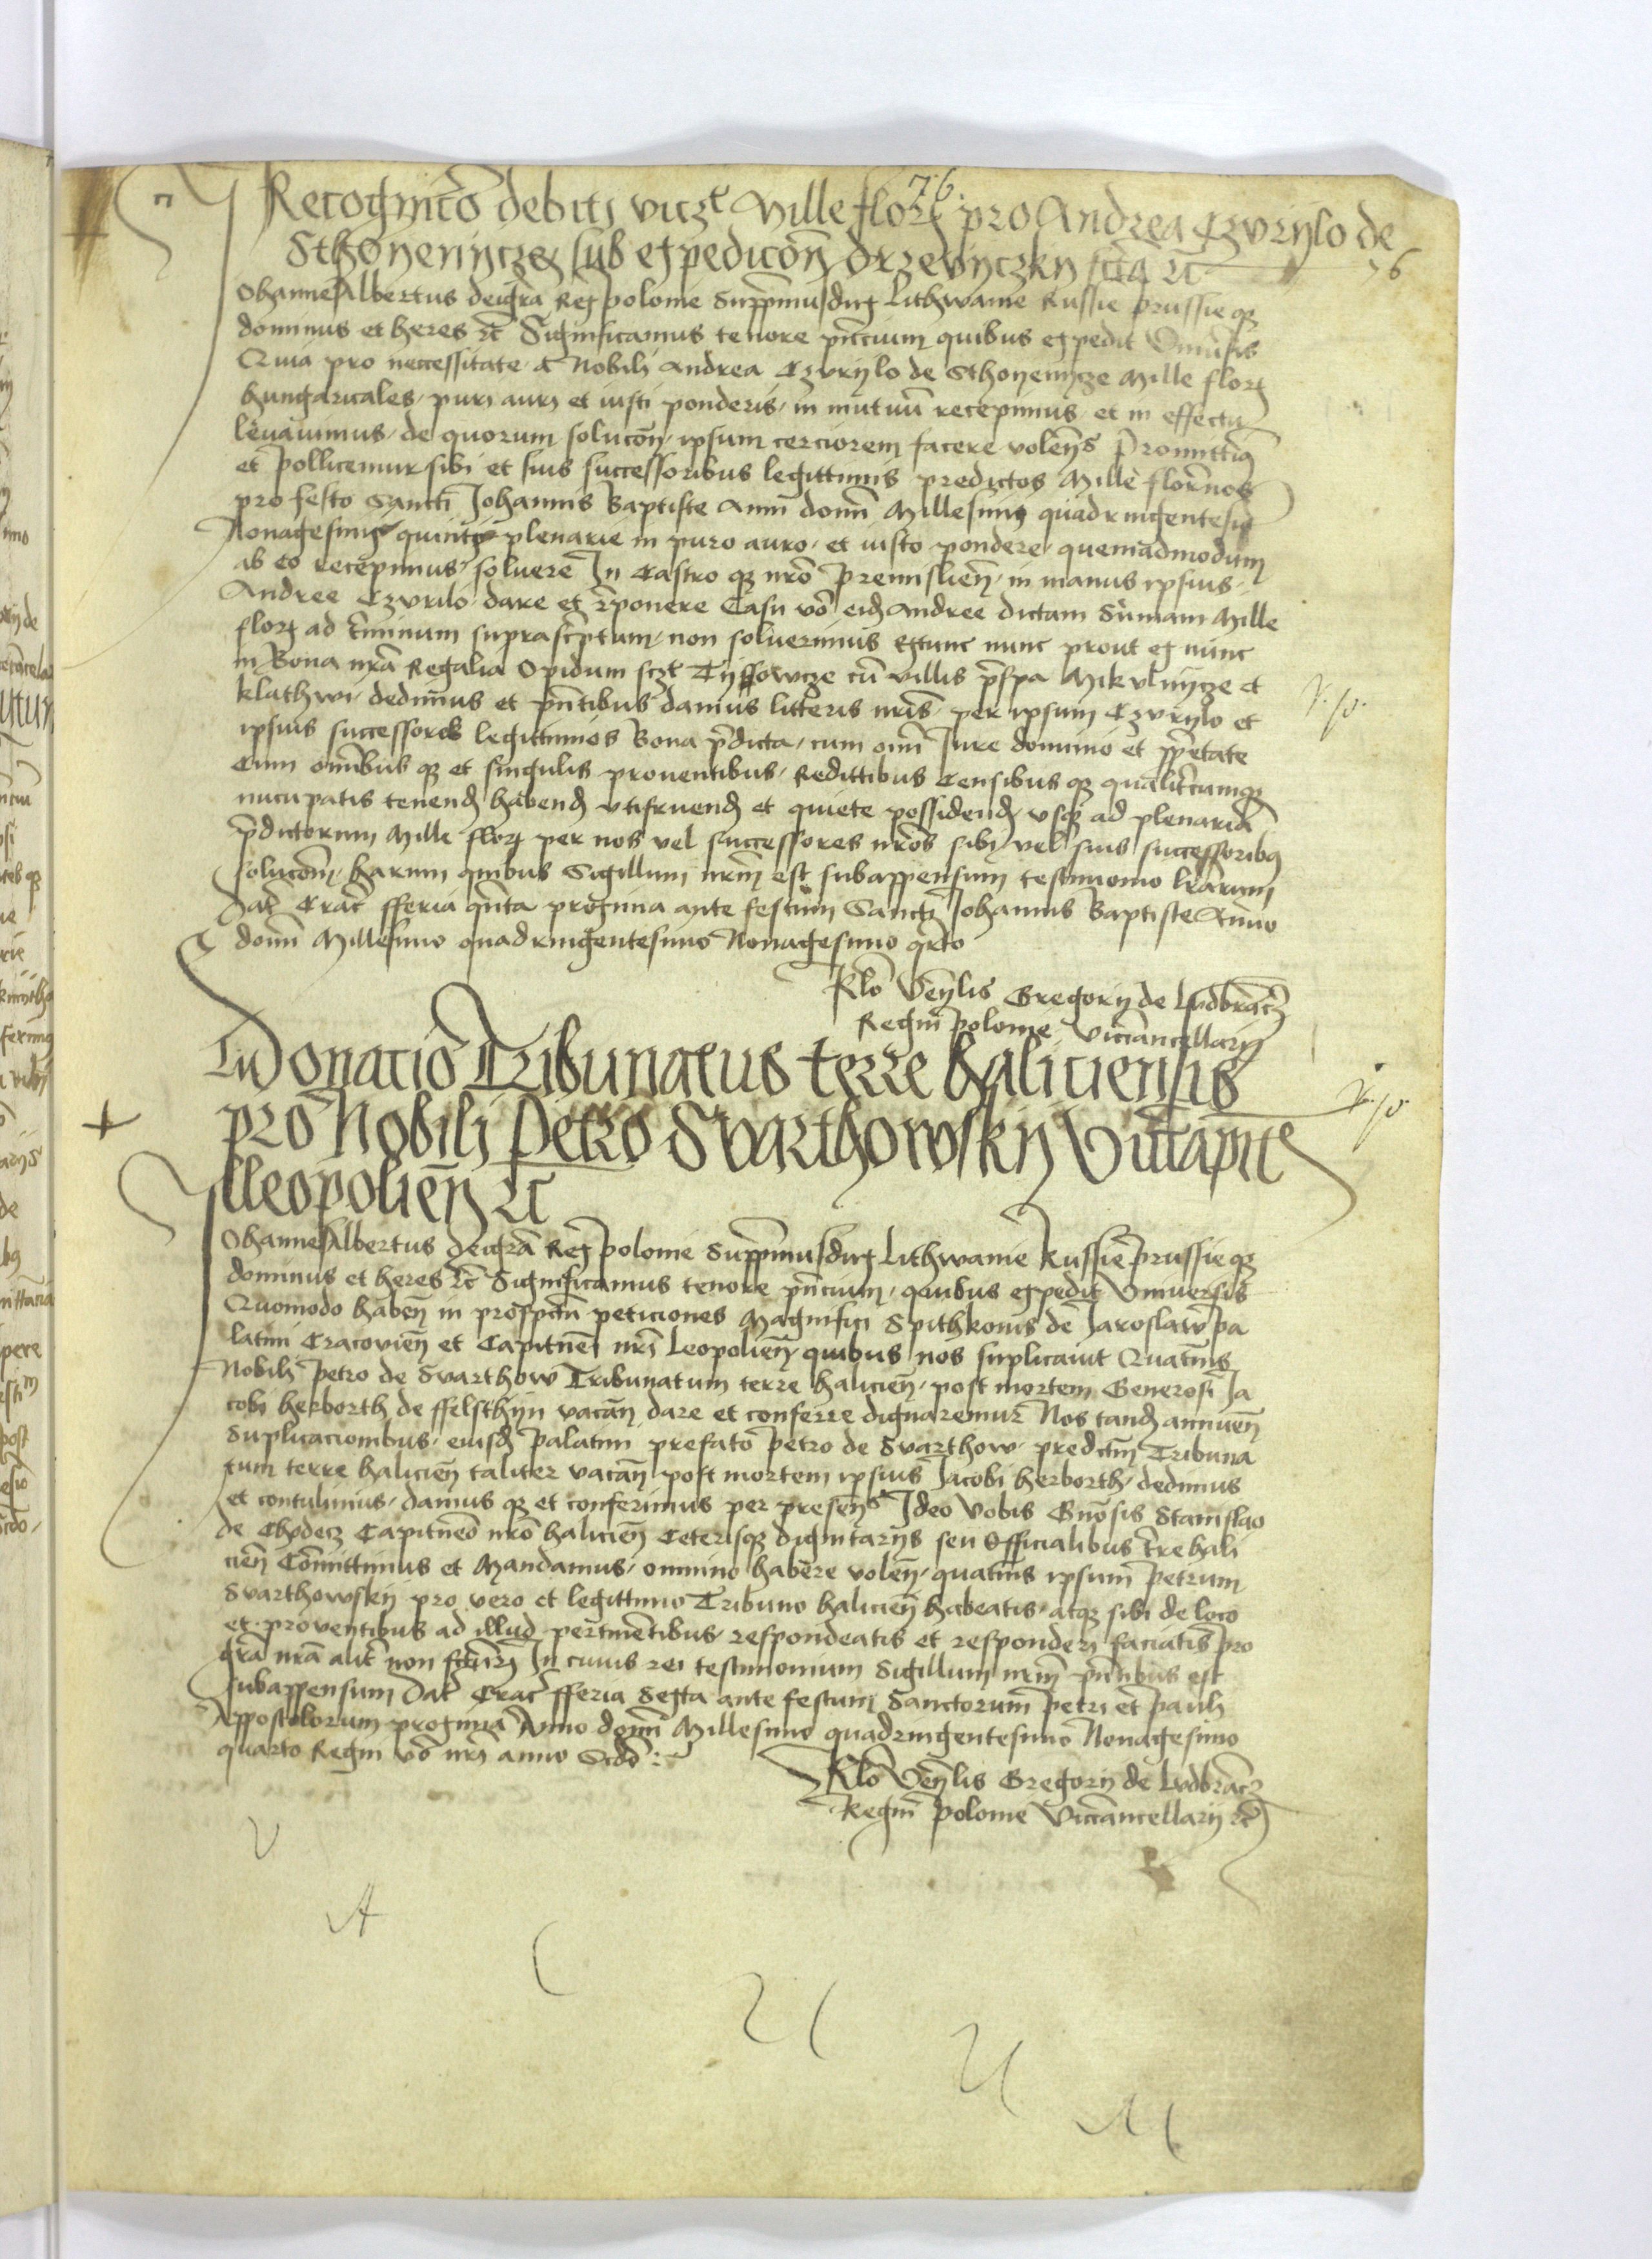 76
Recognicō debiti vicz Mille florꝝ pro Andrea Czvrylo de
Sthoyenycze sub expedicōn drzevyczky scͥta ꝛc
76
Johannes Albertus dei grā Rex polonie Suppremus dux Lithwanie Russie prussie qꝫ
dominus et heres ꝛc Significamus tenore pn̄cium quibus expedit Vniūsis
Quia pro neccessitate a Nobili Andrea Czvrylo de Sthoyenycze Mille florꝝ
hungaricales puri auri et iusti ponderis in mutuū recepimus et in effectu
levavimus de quorum solucōn ipsum cerciorem facere volen̄s Promittim9
et pollicemur sibi et suis successoribus legittimis predictos Mille florenos
pro festo Sancti Johannis Baptiste Anni domī Millesimi quadringentesi
Nonagesimi quinti plenarie in puro auro et iusto pondere quemadmodum
ab eo recepimus soluere In Castro qꝫ nrō Premislien̄ in manus ipsius
Andree Czvrilo dare et r̄ponere Casu vō eidꝫ Andree dictam Sūmam Mille
florꝝ ad t̄minum suprascͥptum non soluerimus extunc nunc prout ex nunc
in Bona nrā Regalia Opidum sczͭ Tyssowcze cū villis Mikvlinycze et
klathwi dedimus et pn̄tibus damus litteris nrīs per ipsum Czvrylo et
ipsius successores legittimos Bona p̄dicta cum omī Jure dominio et ꝓprietate
Cum omībus qꝫ et singulis proventibus Redittibus Censibus qꝫ qualitercumqꝫ
nūcupatis tenendꝫ habendꝫ vtifruendꝫ et quiete possidendꝫ vsqꝫ ad plenariā
p̄dictorum Mille florꝝ per nos vel successores nrōs sibi vel suis successoribꝫ
solucōm harum quibus Sigillum nrm̄ est subappensum testimonio lrārum
Dat̄ Crac̄ fferia qͥnta proxima ante festum Sancti Johannis Baptiste Anno
domī Millesimo quadringentesimo Nonagesimo qͣrto
Rlō Ven̄lis Gregorij de Lvdbrancz
Regni polonie vicecancellarij
Donacio Tribunatus terre haliciensis
pro Nobili Petro Svarthowsky Vicecapite
lleopolien̄ ꝛc
Johannes Albertus dei grā Rex polonie Suppremus dux Lithwanie Russie prussie qꝫ
dominus et heres ꝛc Significamus tenore pn̄cium quibus expedit Vniversis
Quomodo haben̄ in prospctū peticiones Magnifici Spithkonis de Jaroslaw pa
latini Cracovien̄ et Capitnei nrī Leopolien̄ quibus nos suplicavit Quaten̄s
Nobili Petro de Svarthow Tribunatum terre halicien̄ post mortem Generosi Ja
cobi herborth de ffelsthyn vacan̄ dare et conferre dignaremur Nos tandꝫ annuen̄
Suplicacionibus eiusdꝫ Palatini prefato Petro de Svarthow predictm̄ Tribuna
tum terre halicien̄ taliter vacan̄ post mortem ipsius Jacobi herborth dedimus
et contulimus damus qꝫ et conferimus per presen̄s Ideo vobis Gnōsis Stanislao
de Chodecz Capitneo nrō halicien̄ Ceterisqꝫ dignitarijs seu Officialibus t̄re hali
cien̄ Com̄ittimus et Mandamus omnino habere volen̄ quaten̄s ipsum Petrum
Svarthowsky pro vero et legittimo Tribuno halicien̄ habeatis atqꝫ sibi de loco
et proventibus ad illud pertinentibus respondeatis et responderi faciatis Pro
grā nrā alit̄ non fctūri In cuius rei testimonium Sigillum nrm̄ pn̄tibus est
subappensum Dat̄ Crac̄ fferia Sexta ante festum Sanctorum Petri et Pauli
Appostolorum proxima Anno domī Millesimo quadringentesimo Nonagesimo
quarto Regni vō nrī anno Scdō
Rlō Ven̄lis Gregorij de Lvdbrancz
Regni polonie Vicecancellarij ꝛc
V A C U U M